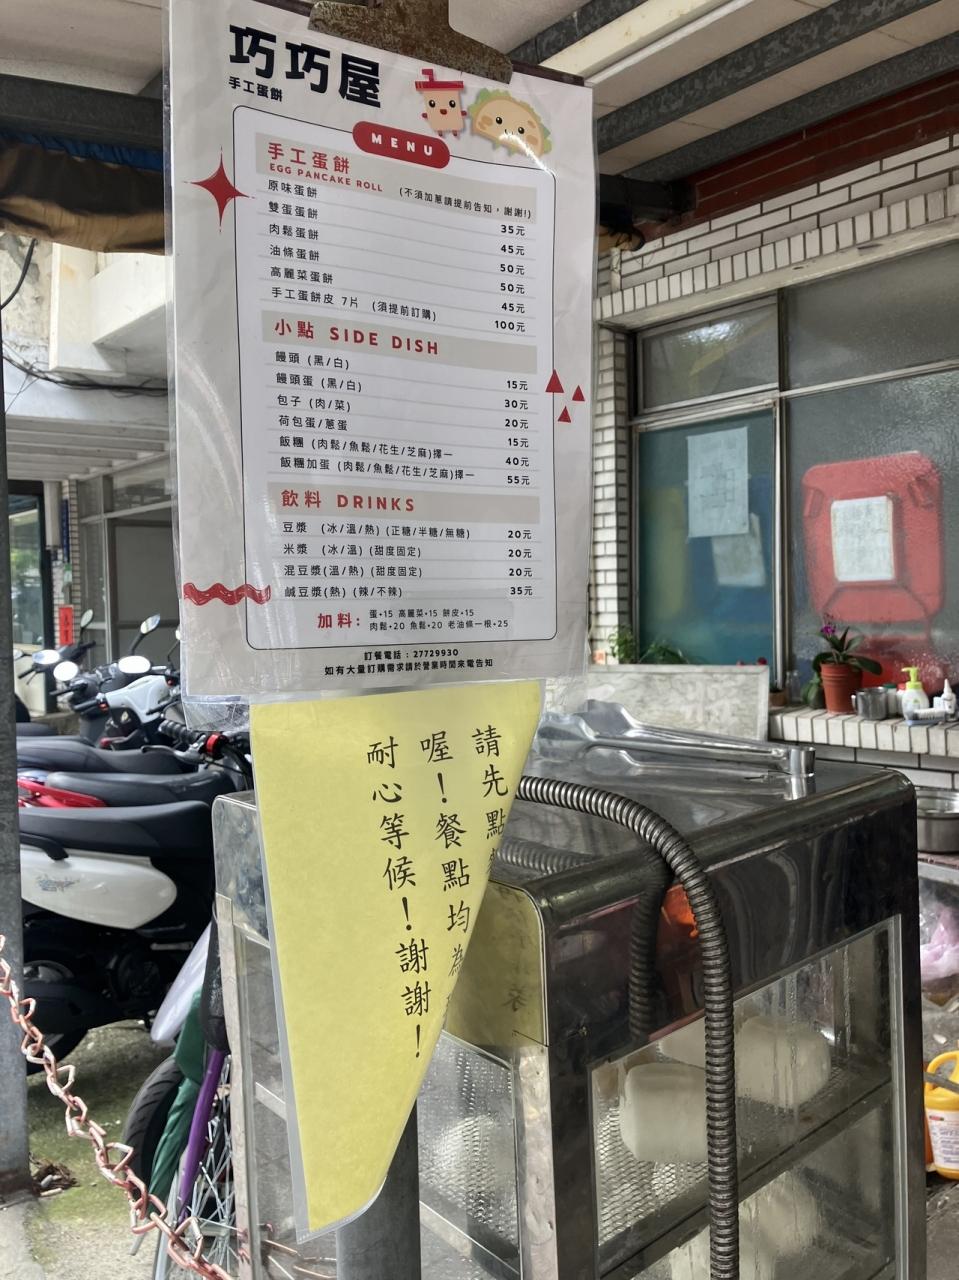 巧巧屋
手工蛋餅
MENU
手工蛋餅
EGG PANCAKE ROLL (不須加蔥請提前告知，謝謝!)
原味蛋餅 35元
雙蛋蛋餅 45元
肉鬆蛋餅 50元
油條蛋餅 50元
高麗菜蛋餅 45元
手工蛋餅皮 7片 (須提前訂購) 100元
小點 SIDE DISH
饅頭 (黑/白) 15元
饅頭蛋 (黑/白) 30元
包子 (肉/菜) 20元
荷包蛋/蔥蛋 15元
飯糰 (肉鬆/魚鬆/花生/芝麻)擇一 40元
飯糰加蛋 (肉鬆/魚鬆/花生/芝麻)擇一 55元
飲料 DRINKS
豆漿 (冰/溫/熱) (正糖/半糖/無糖) 20元
米漿 (冰/溫) (甜度固定) 20元
混豆漿(溫/熱) (甜度固定) 20元
鹹豆漿(熱) (辣/不辣) 35元
加料:
蛋+15 高麗菜+15 餅皮+15
肉鬆+20 魚鬆+20 老油條一根+25
訂餐電話：27729930
如有大量訂購需求請於營業時間來電告知
請先點
喔！餐點均為
耐心等候！謝謝！